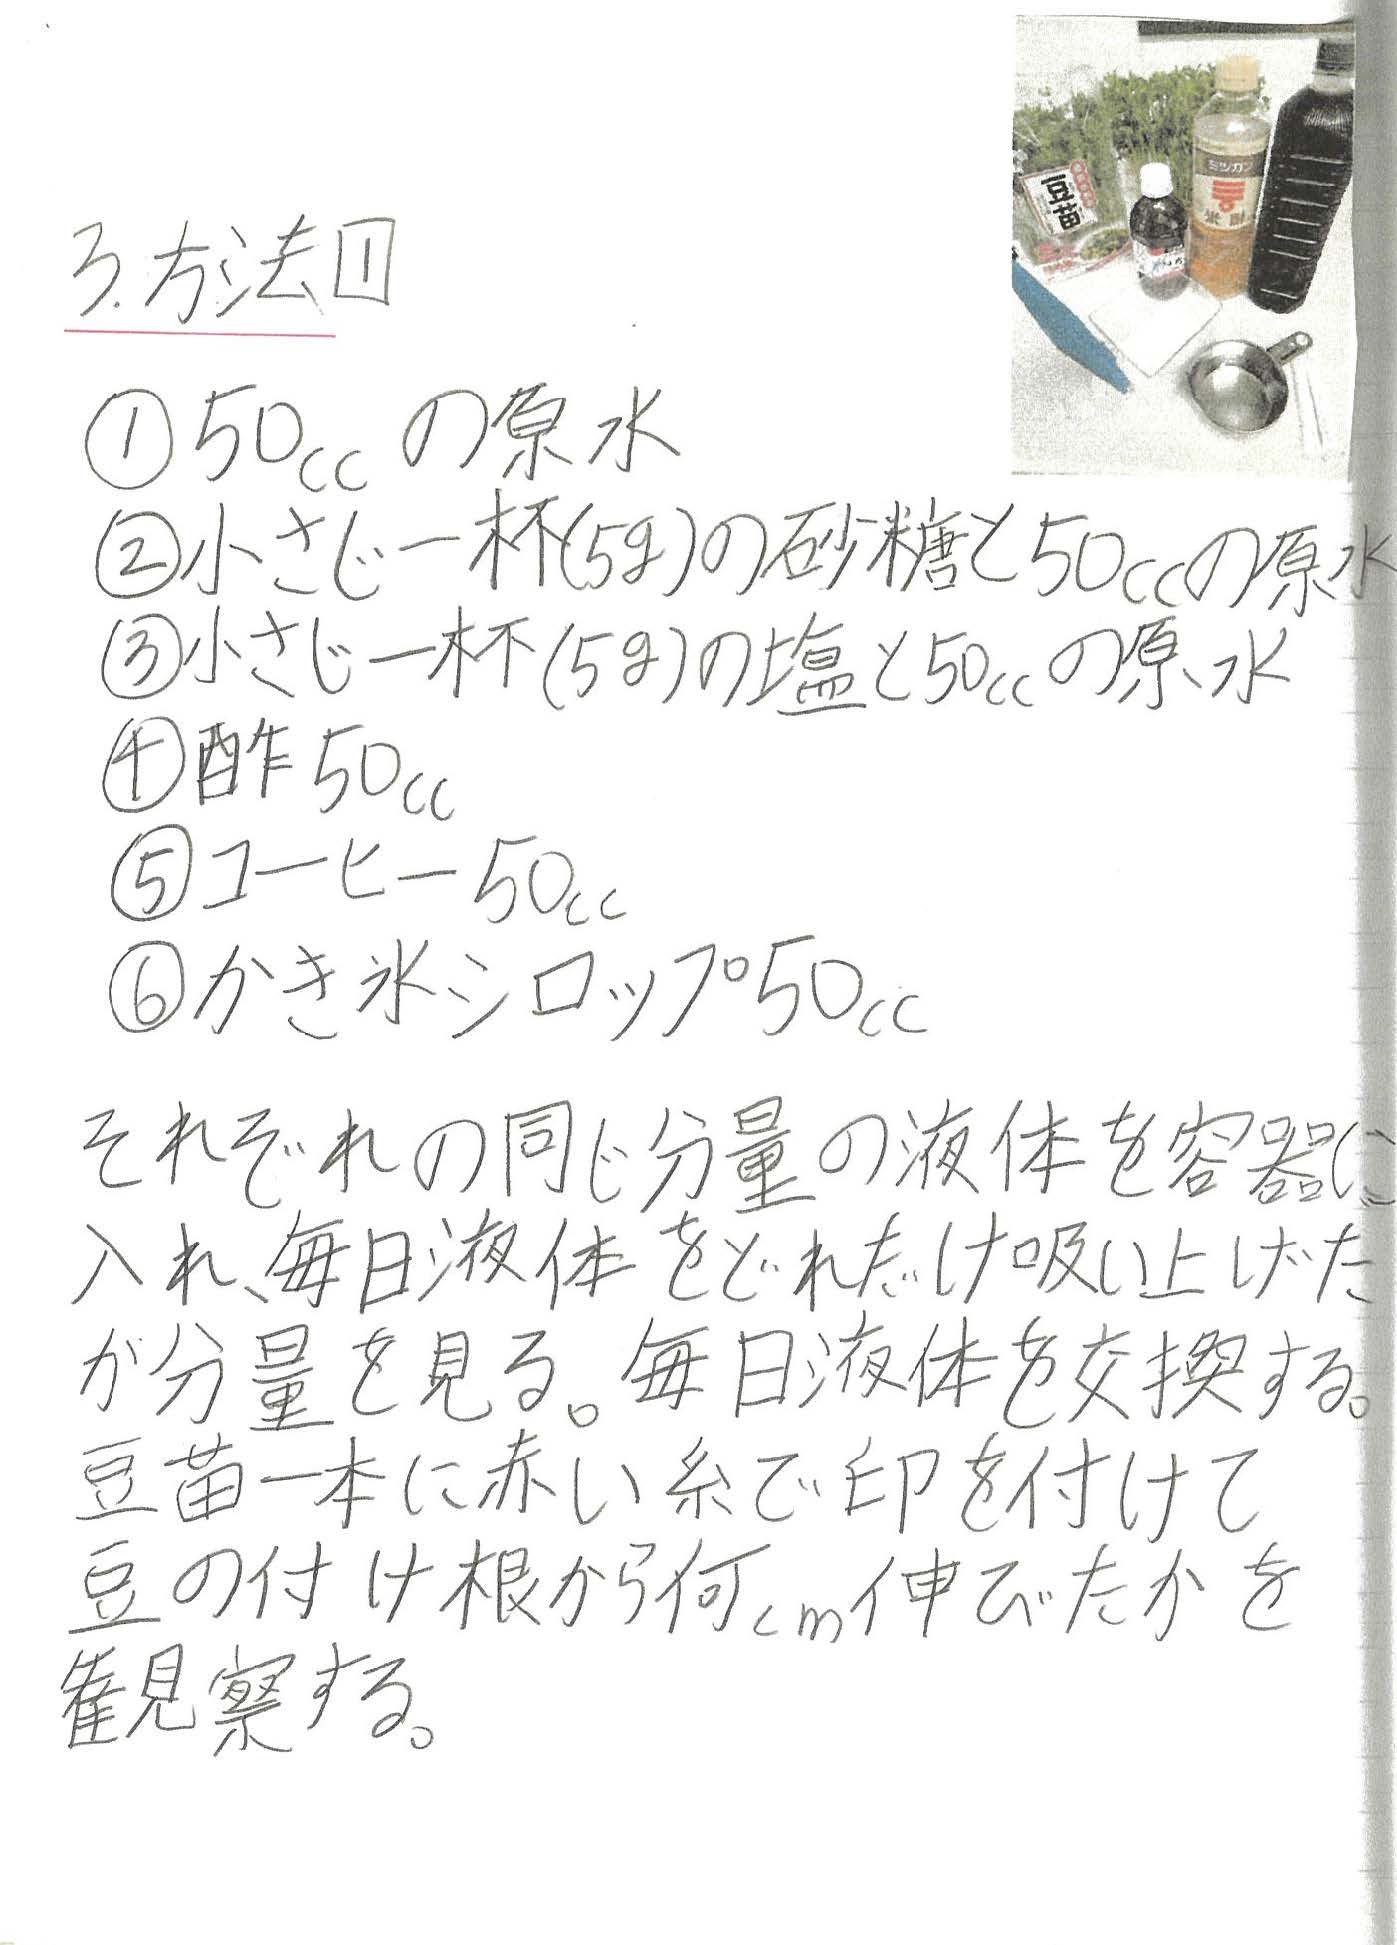 3.方法1
①50ccの原水
②小さじ一杯(5g)の砂糖と50ccの原水
③小さじ一杯(5g)の塩と50ccの原水
④酢50cc
⑤コーヒー50cc
⑥かき氷シロップ50cc
それぞれの同じ分量の液体を容器に
入れ、毎日液体をどれだけ吸い上げた
が分量を見る。毎日液体を交換する。
豆苗一本に赤い糸で印を付けて
豆の付け根から何cm伸びたかを
観察する。
豆苗
ミツカン
米酢